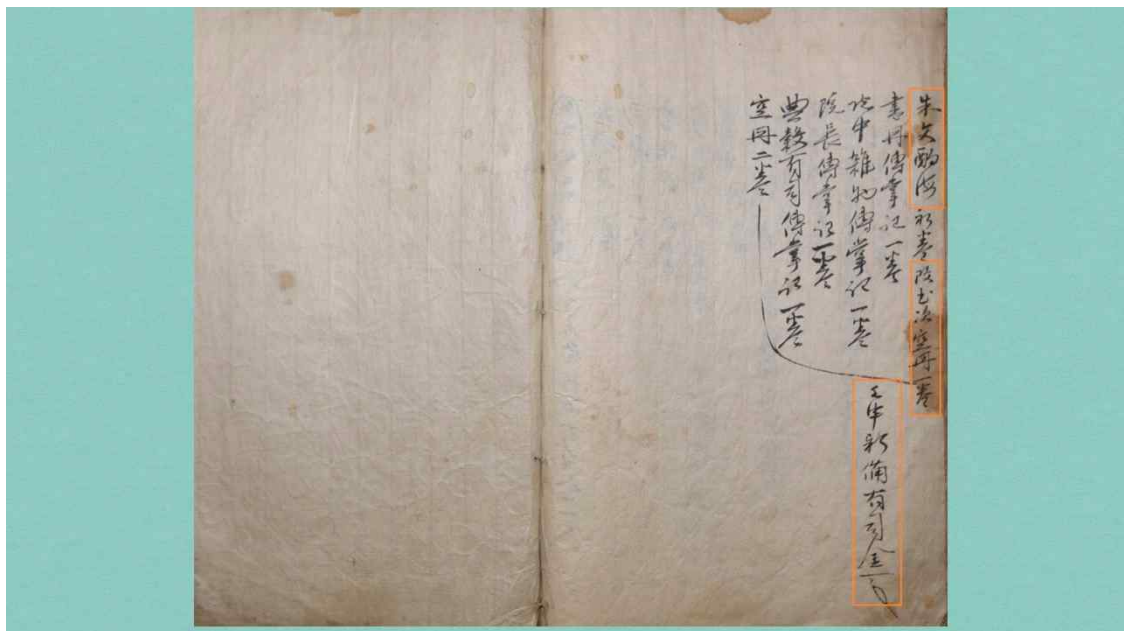 朱文酌海 初卷 院書冶空冊一卷
書冊傳掌記一卷
院中雜物傳掌記一卷
院長傳掌記一卷
典穀有司傳掌記一卷
空冊二卷
壬申新備有司金